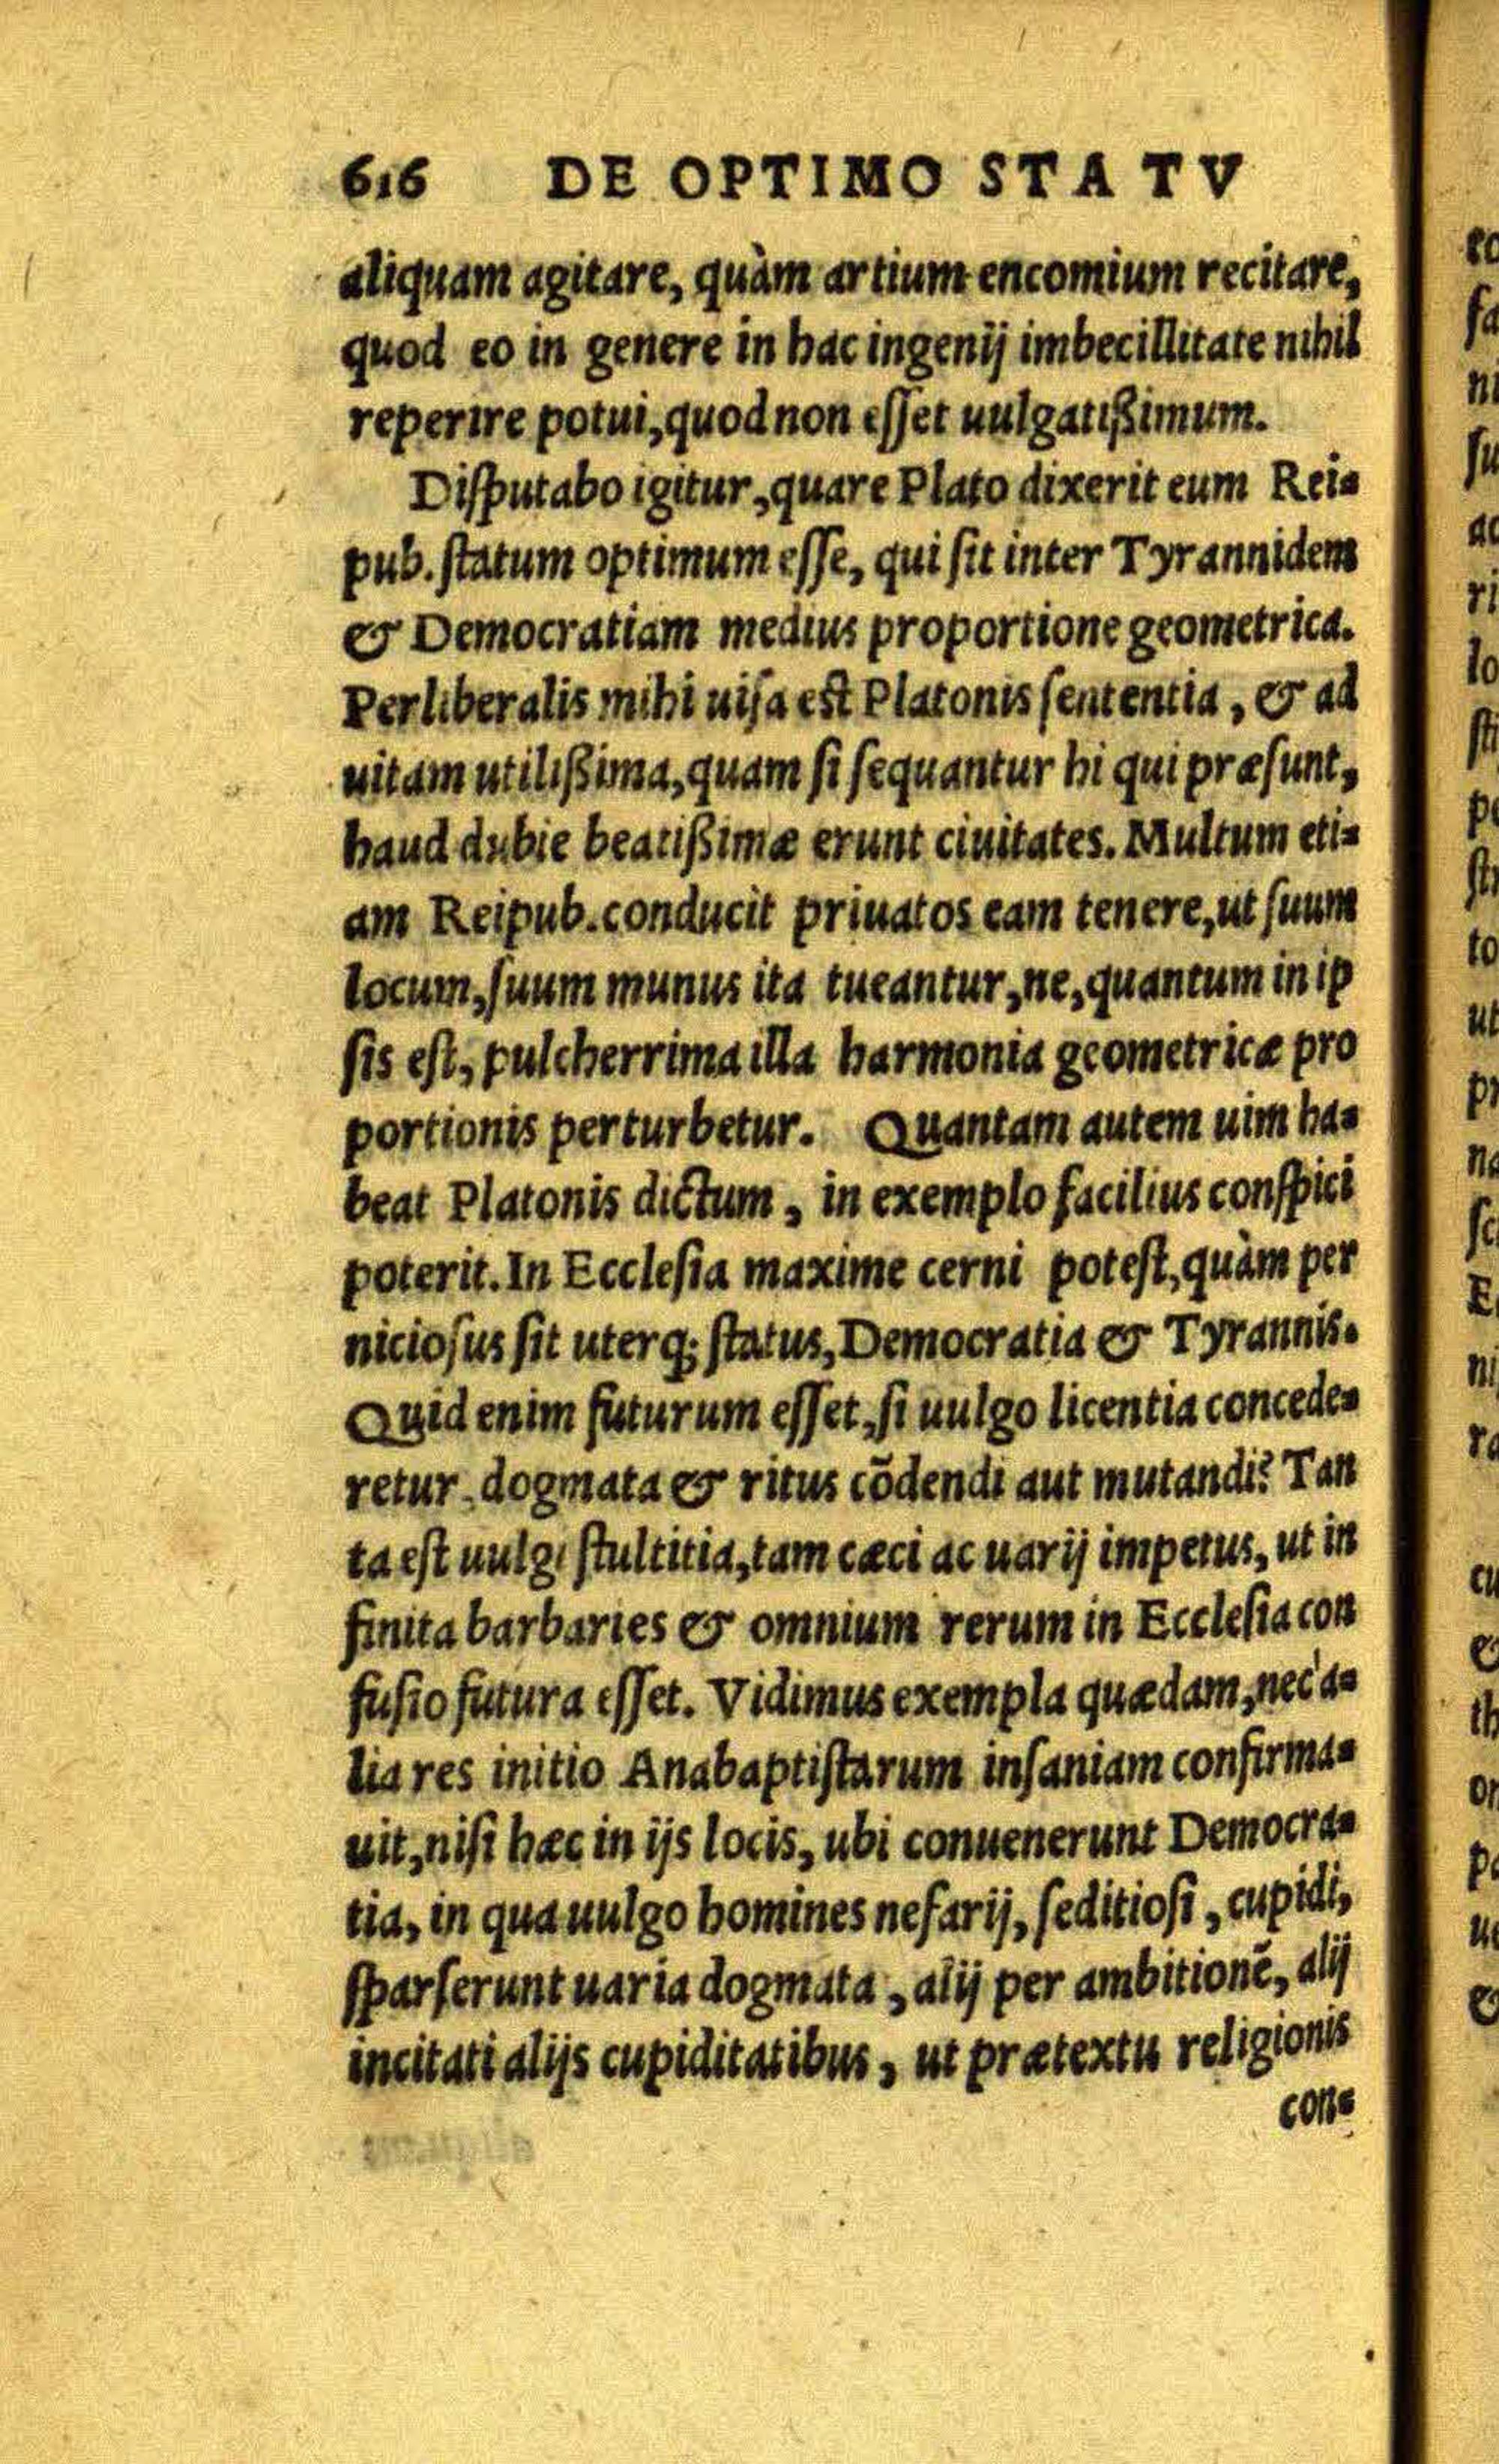 616 DE OPTIMO STATV
aliquam agitare, quàm artium encomium recitare,
quod eo in genere in hac ingenij imbecillitate nihil
reperire potui, quod non esset uulgatißimum.
Disputabo igitur, quare Plato dixerit eum Rei-
pub. statum optimum esse, qui sit inter Tyrannidem
& Democratiam medius proportione geometrica.
Perliberalis mihi uisa est Platonis sententia, & ad
uitam utilißima, quam si sequantur hi qui præsunt,
haud dubie beatißimæ erunt ciuitates. Multum eti-
am Reipub. conducit priuatos eam tenere, ut suum
locum, suum munus ita tueantur, ne, quantum in ip
sis est, pulcherrima illa harmonia geometricæ pro
portionis perturbetur. Quantam autem uim ha-
beat Platonis dictum, in exemplo facilius conspici
poterit. In Ecclesia maxime cerni potest, quàm per
niciosus sit uterq; status, Democratia & Tyrannis.
Quid enim futurum esset, si uulgo licentia concede-
retur, dogmata & ritus cõdendi aut mutandi? Tan
ta est uulgi stultitia, tam cæci ac uarij impetus, ut in
finita barbaries & omnium rerum in Ecclesia con
fusio futura esset. Vidimus exempla quædam, nec a-
lia res initio Anabaptistarum insaniam confirma-
uit, nisi hæc in ijs locis, ubi conuenerunt Democra-
tia, in qua uulgo homines nefarij, seditiosi, cupidi,
sparserunt uaria dogmata, alij per ambitionẽ, alij
incitati alijs cupiditatibus, ut prætextu religionis
con-